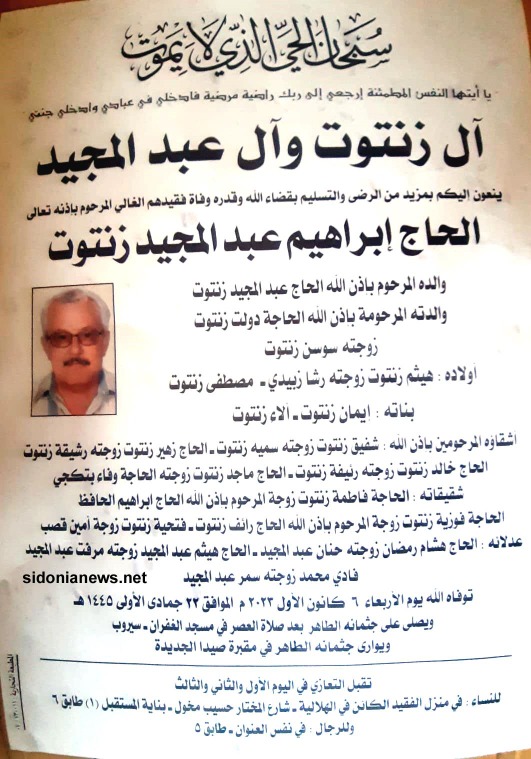 سبحان الحي الذي لا يموت
يا أيتها النفس المطمئنة إرجعي إلى ربك راضية مرضية فادخلي في عبادي وادخلي جنتي
آل زنتوت وآل عبد المجيد
ينعون اليكم بمزيد من الرضى والتسليم بقضاء الله وقدره وفاة فقيدهم الغالي المرحوم بإذنه تعالى
الحاج إبراهيم عبد المجيد زنتوت
والده المرحوم باذن الله الحاج عبد المجيد زنتوت
والدته المرحومة باذن الله الحاجة دولت زنتوت
زوجته سوسن زنتوت
اولاده : هيثم زنتوت زوجته رشا زبيدي ـ مصطفى زنتوت
بناته : ايمان زنتوت ـ الاء زنتوت
اشقاؤه المرحومين باذن الله : شفيق زنتوت زوجته سميه زنتوت ـ الحاج زهير زنتوت زوجته رشيقة زنتوت
الحاج خالد زنتوت زوجته رئيفة زنتوت ـ الحاج ماجد زنتوت زوجته الحاجة وفاء بتكجي
شقيقاته : الحاجة فاطمة زنتوت زوجة المرحوم باذن الله الحاج ابراهيم الحافظ
الحاجة فوزية زنتوت زوجة المرحوم باذن الله الحاج رائف زنتوت ـ فتحية زنتوت زوجة أمين قصب
عدلانه : الحاج هشام رمضان زوجته حنان عبد المجيد ـ الحاج هيثم عبد المجيد زوجته مرفت عبد المجيد
فادي محمد زوجته سمر عبد المجيد
sidonianews.net
توفاه الله يوم الأربعاء ٦ كانون الأول ٢٠٢٣ م الموافق ٢٢ جمادى الأولى ١٤٤٥ هـ
ويصلى على جثمانه الطاهر بعد صلاة العصر في مسجد الغفران ـ سيروب
ويوارى جثمانه الطاهر في مقبرة صيدا الجديدة
تقبل التعازي في اليوم الأول والثاني والثالث
للنساء : في منزل الفقيد الكائن في الهلالية ـ شارع المختار حسيب مخول ـ بناية المستقبل (١) طابق ٦
وللرجال : في نفس العنوان ـ طابق ٥
المطبعة التجارية